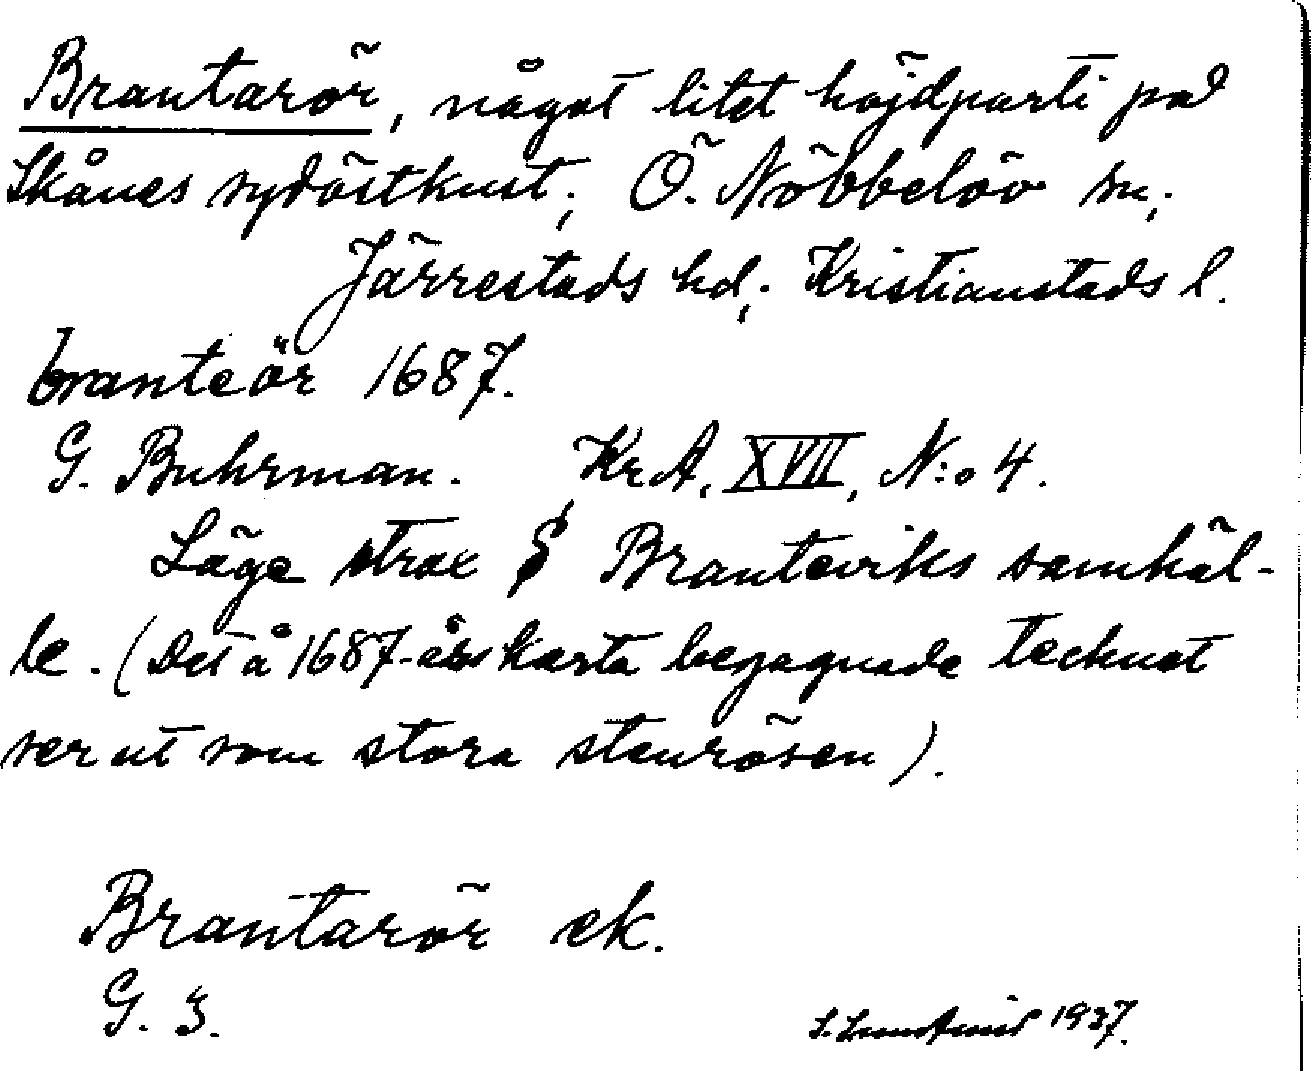 Brantarör, något litet höjdparti på
Skånes sydöstkust; Ö. Nöbbelöv sn;
Järrestads hd; Kristianstads l.
branteör 1687.
G. Buhrman. Kr.A. XVII, N:o 4.
Läge strax S Branteviks samhäl-
le. (Det å 1687-års karta begagnade tecknet
ser ut som stora stenrösen).
Brantarör ek.
G. 3.
S. Lundqvist 1937.